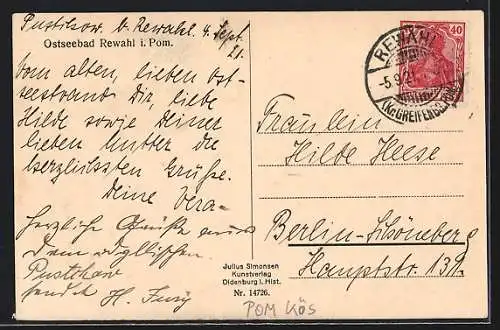 Pustchow b. Rewahl. 4. Sept. 21.
Ostseebad Rewahl i. Pom.
Vom alten, lieben Ost-
seestrand Dir, liebe
Hilde sowie Deiner
lieben Mutter die
herzlichsten Grüße.
Deine Vera
Herzliche Grüße aus
Dem idyllischen
Pustchow
sendet H.
40
REWAHL
-5.9.21
(Kr. GREIFENBG
Fräulein
Hilde Heese
Berlin-Schöneberg
Hauptstr. 139.
Julius Simonsen
Kunstverlag
Oldenburg i. Hlst.
Nr. 14726.
POM KÖS